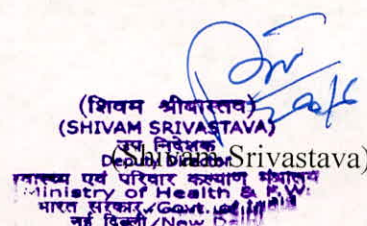 (शिवम श्रीवास्तव)
(SHIVAM SRIVASTAVA)
उप निदेशक
Deputy Director
(Shivam Srivastava)
स्वास्थ्य एवं परिवार कल्याण मंत्रालय
Ministry of Health & F.W.
भारत सरकार/Govt. of India
नई दिल्ली/New Delhi